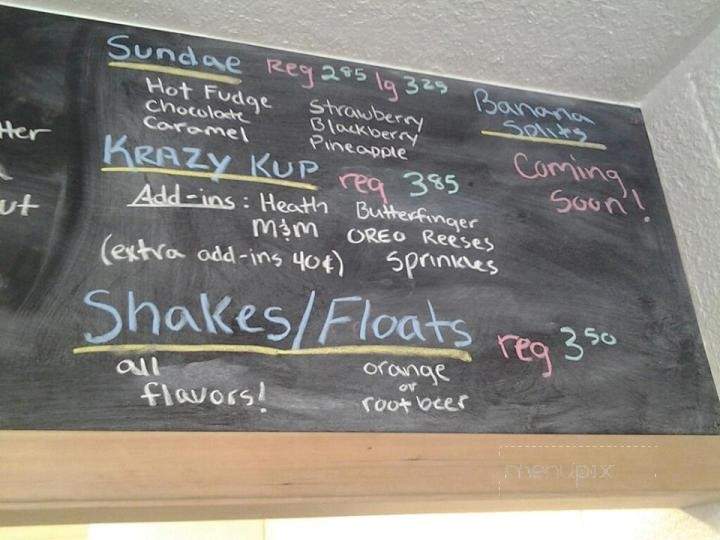 Sundae Reg 285 lg 325
Hot Fudge Strawberry
Chocolate Blackberry
Caramel Pineapple
Banana
Splits
Coming
Soon!
KRAZY KUP reg 385
Add-ins: Heath Butterfinger
M&M OREO Reeses
(extra add-ins 40¢) Sprinkles
Shakes/Floats reg 350
all
flavors!
orange
or
root beer
menupix